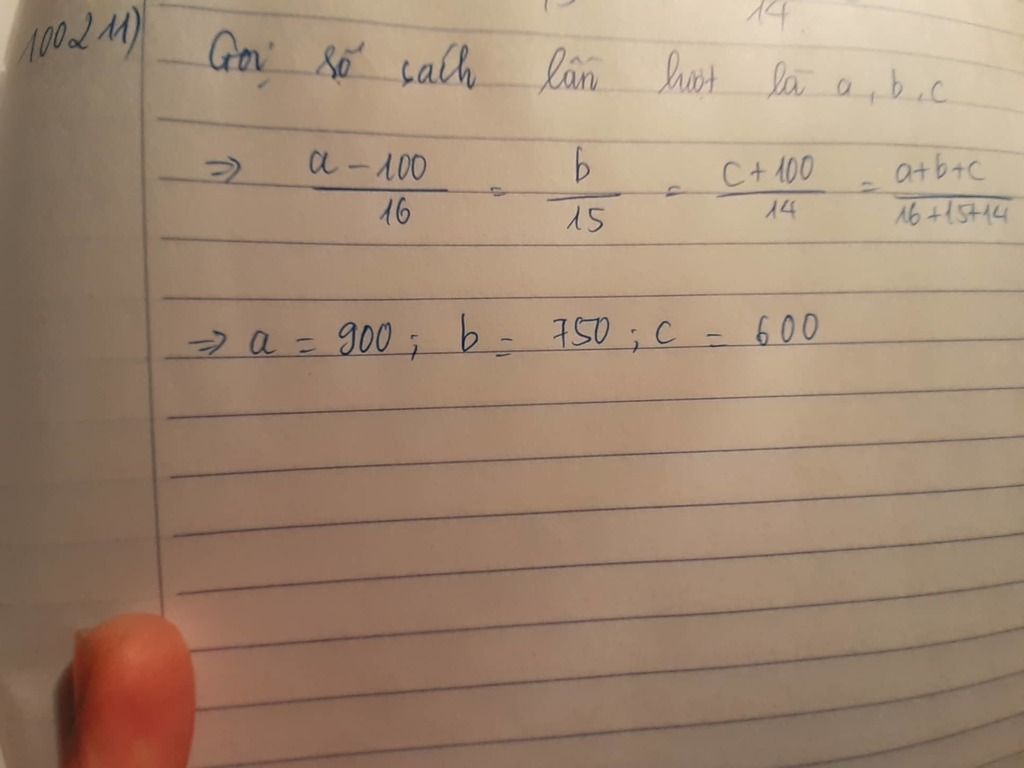 14
100211) Gọi số sách lần lượt là a, b, c
=> a - 100 / 16 = b / 15 = c + 100 / 14 = a+b+c / 16+15+14
=> a = 900 ; b = 750 ; c = 600